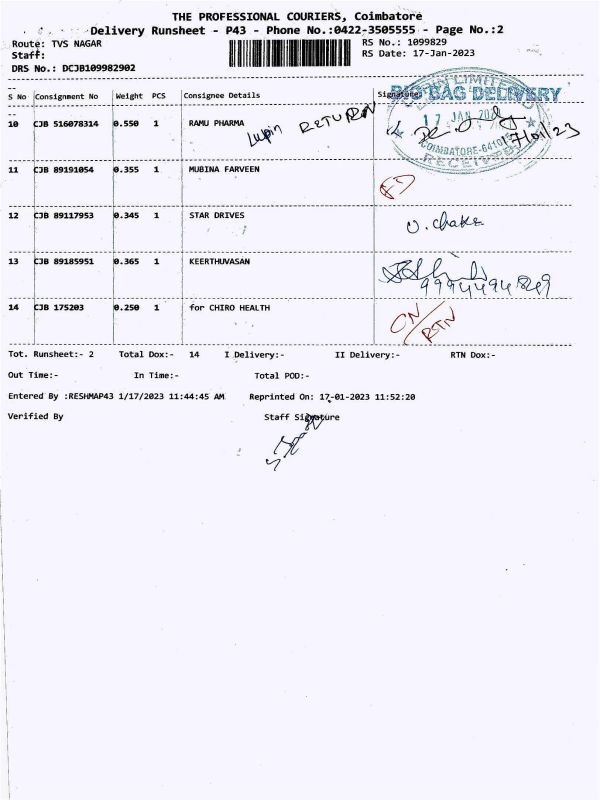 THE PROFESSIONAL COURIERS, Coimbatore
Delivery Runsheet - P43 - Phone No.:0422-3505555 - Page No.:2
Route: TVS NAGAR RS No.: 1099829
Staff: RS Date: 17-Jan-2023
DRS No.: DCJB109982902
S No Consignment No Weight PCS Consignee Details Signature
BIG BAG DELIVERY
10 CJB 516078314 0.550 1 RAMU PHARMA
Lupin RETURN
17 JAN
COIMBATORE-6410
RECEIVED
11 CJB 89191054 0.355 1 MUBINA FARVEEN
12 CJB 89117953 0.345 1 STAR DRIVES
13 CJB 89185951 0.365 1 KEERTHUVASAN
14 CJB 175203 0.250 1 for CHIRO HEALTH
RTN
Tot. Runsheet:- 2 Total Dox:- 14 I Delivery:- II Delivery:- RTN Dox:-
Out Time:- In Time:- Total POD:-
Entered By :RESHMAP43 1/17/2023 11:44:45 AM Reprinted On: 17-01-2023 11:52:20
Verified By Staff Signature